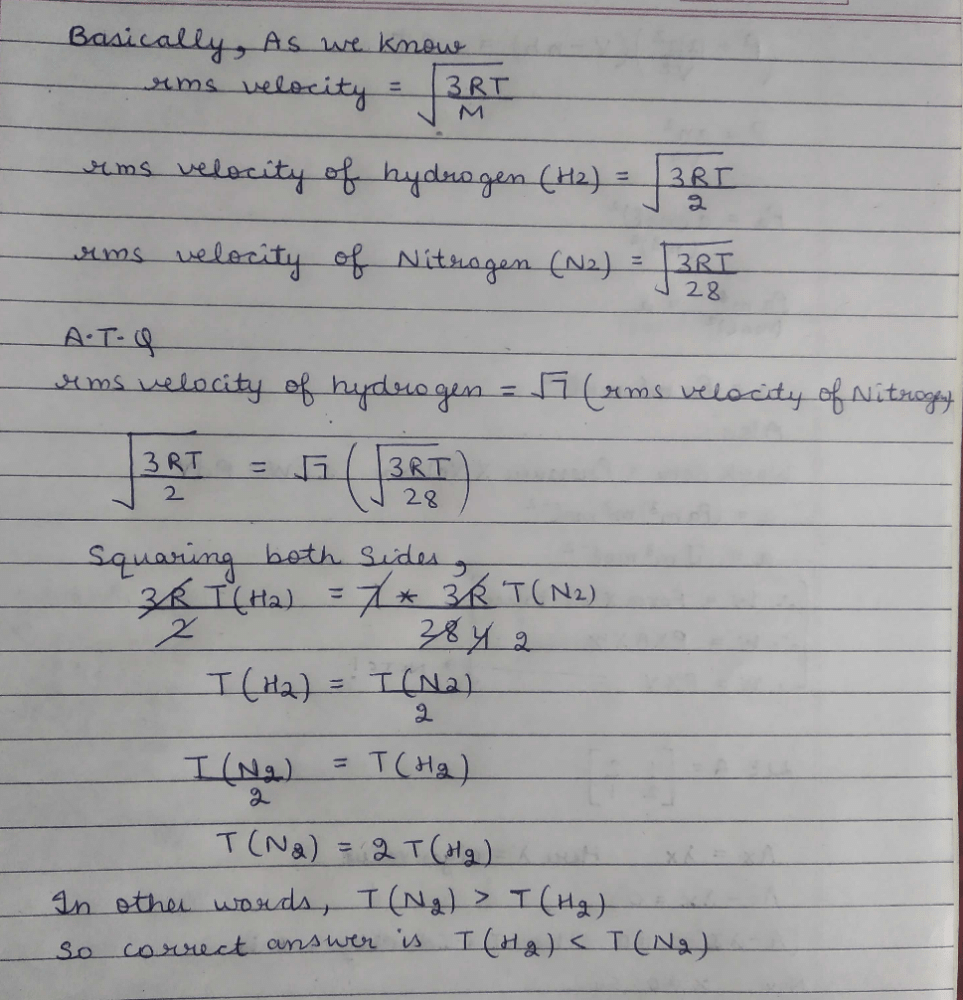 Basically, As we know
rms velocity = √(3RT/M)
rms velocity of hydrogen (H2) = √(3RT/2)
rms velocity of Nitrogen (N2) = √(3RT/28)
A.T.Q
rms velocity of hydrogen = √7 (rms velocity of Nitrogen)
√(3RT/2) = √7 (√(3RT/28))
Squaring both sides,
3R T(H2)/2 = 7 * 3R T(N2)/28 4 2
T(H2) = T(N2)/2
T(N2)/2 = T(H2)
T(N2) = 2 T(H2)
In other words, T(N2) > T(H2)
So correct answer is T(H2) < T(N2)